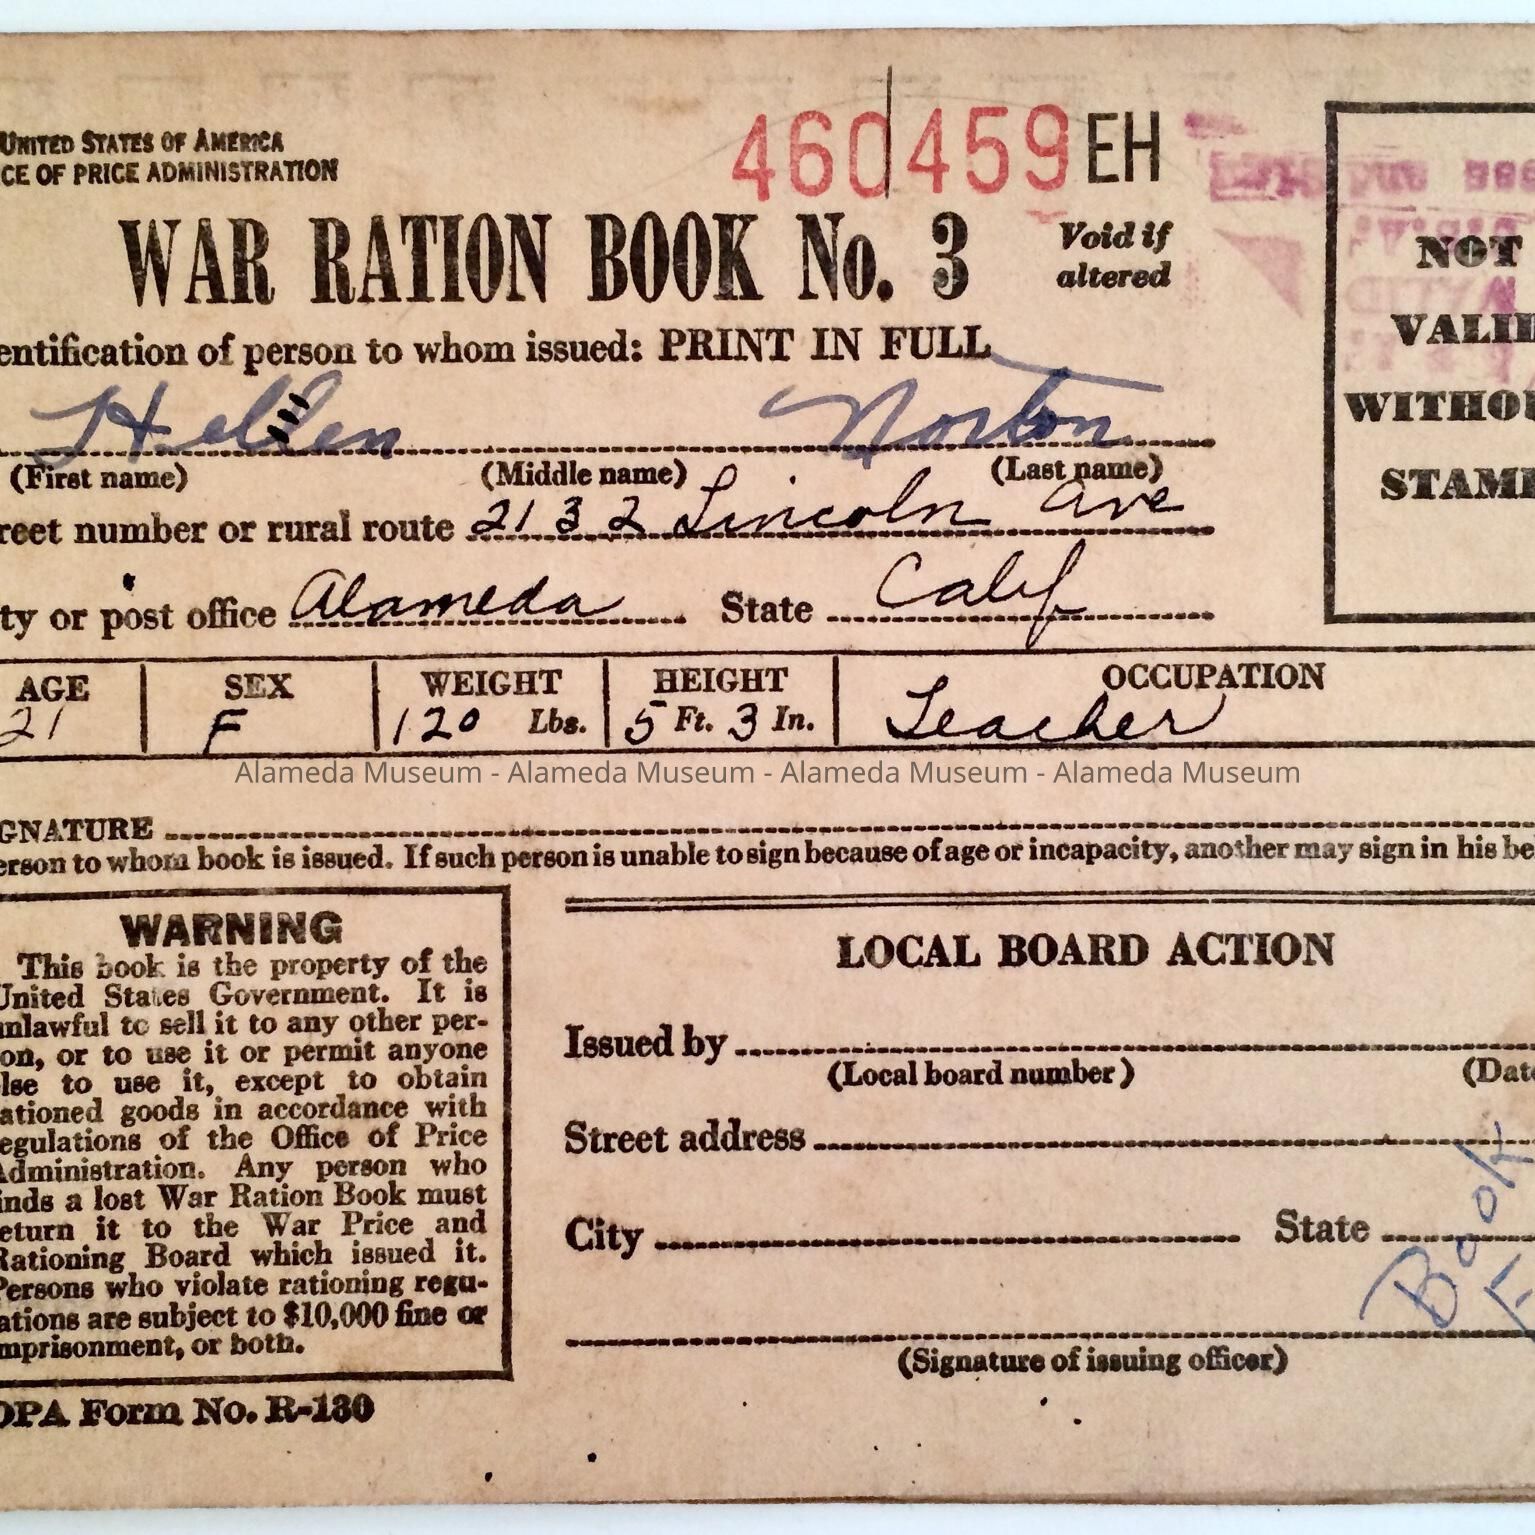 UNITED STATES OF AMERICA
CE OF PRICE ADMINISTRATION
460459 EH
WAR RATION BOOK No. 3
Void if
altered
entification of person to whom issued: PRINT IN FULL
Hellen Norton
(First name) (Middle name) (Last name)
reet number or rural route 2132 Lincoln Ave
ty or post office Alameda State Calif
NOT
VALID
WITHOU
STAMP
AGE SEX WEIGHT HEIGHT OCCUPATION
21 F 120 Lbs. 5 Ft. 3 In. Teacher
Alameda Museum - Alameda Museum - Alameda Museum - Alameda Museum
GNATURE
erson to whom book is issued. If such person is unable to sign because of age or incapacity, another may sign in his be
WARNING
This book is the property of the
United States Government. It is
unlawful to sell it to any other per-
on, or to use it or permit anyone
lse to use it, except to obtain
ationed goods in accordance with
egulations of the Office of Price
Administration. Any person who
inds a lost War Ration Book must
eturn it to the War Price and
Rationing Board which issued it.
Persons who violate rationing regu-
ations are subject to $10,000 fine or
mprisonment, or both.
OPA Form No. R-130
LOCAL BOARD ACTION
Issued by
(Local board number) (Date
Street address
City State
Book
(Signature of issuing officer)